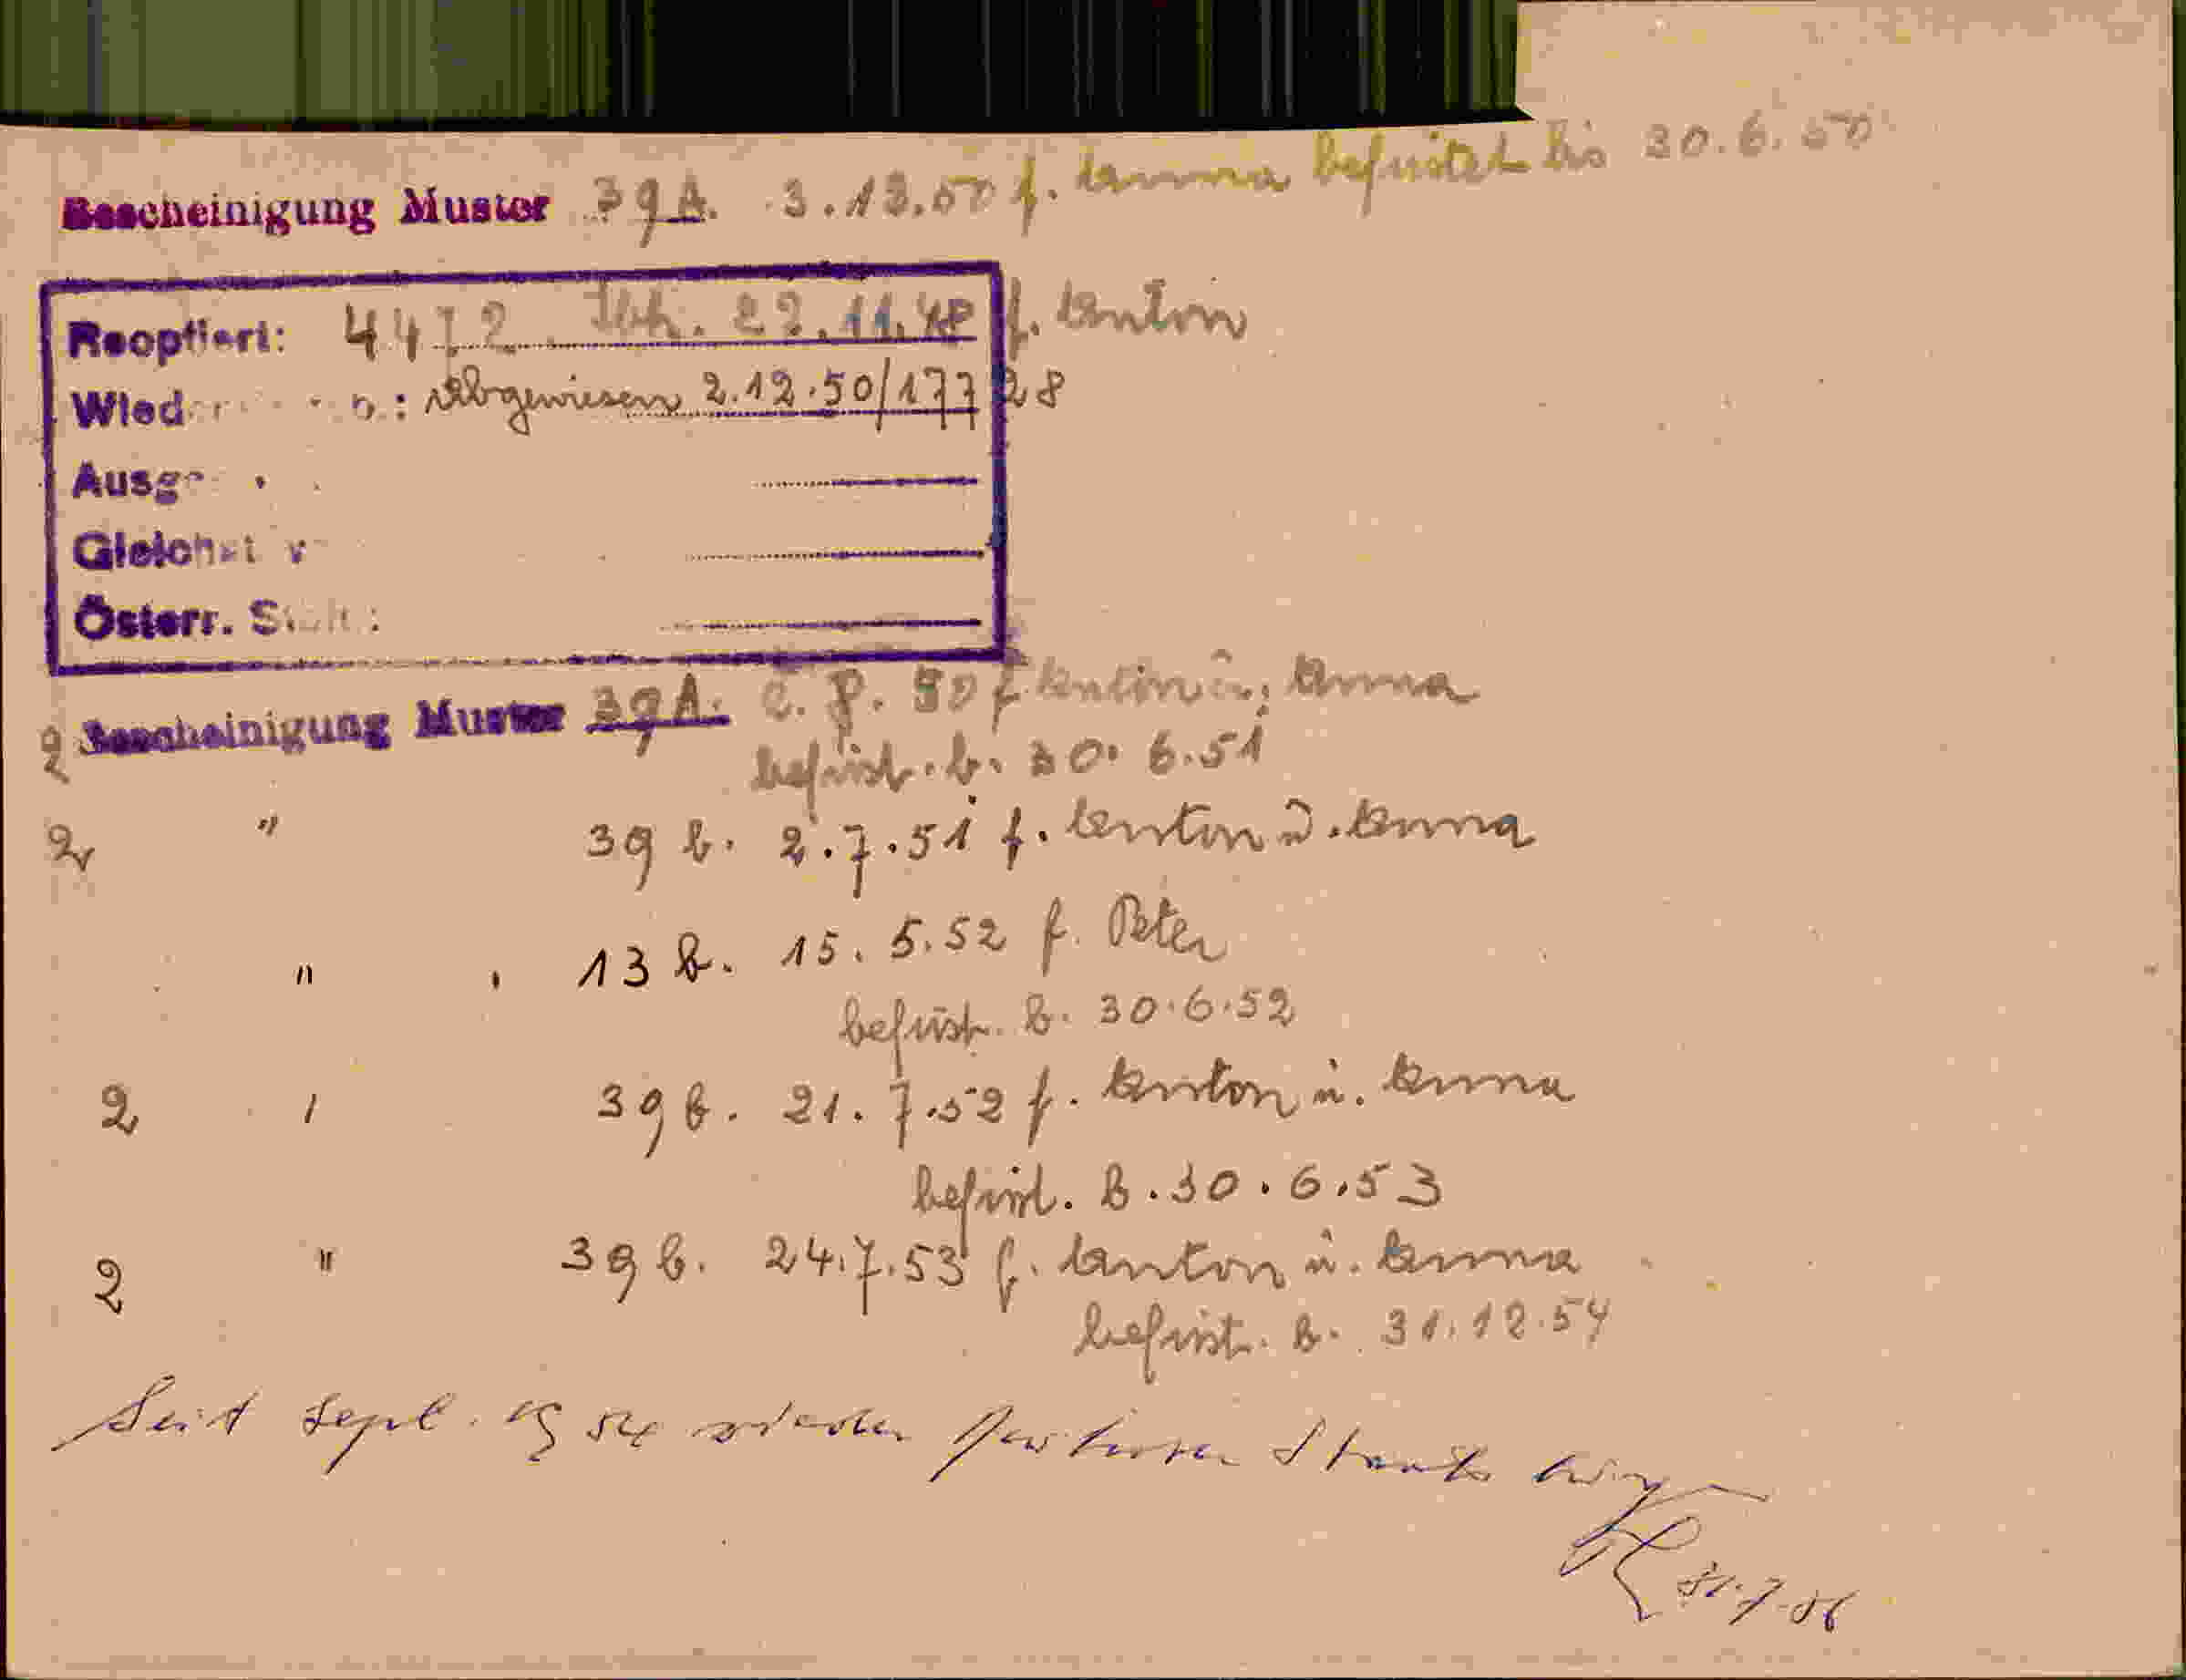 Bescheinigung Muster 39A. 3.13.50 f. Anna befristet bis 30.6.50
Reoptiert: 4472 22.11.48 f. Anton
Wied : Abgewiesen 2.12.50/17728
Ausg
Gleich
Österr. St
2 Bescheinigung Muster 39A. 8.50 f. Anton u. Anna
befrist. b. 30.6.51
2 " 39 b. 2.7.51 f. Anton u. Anna
" 13 b. 15.5.52 f. Peter
befrist. b. 30.6.52
2 " 39 b. 21.7.52 f. Anton u. Anna
befrist. b. 30.6.53
2 " 39 b. 24.7.53 f. Anton u. Anna
befrist. b. 31.12.54
Seit Sept. 1954 wieder Staats
31.7.56